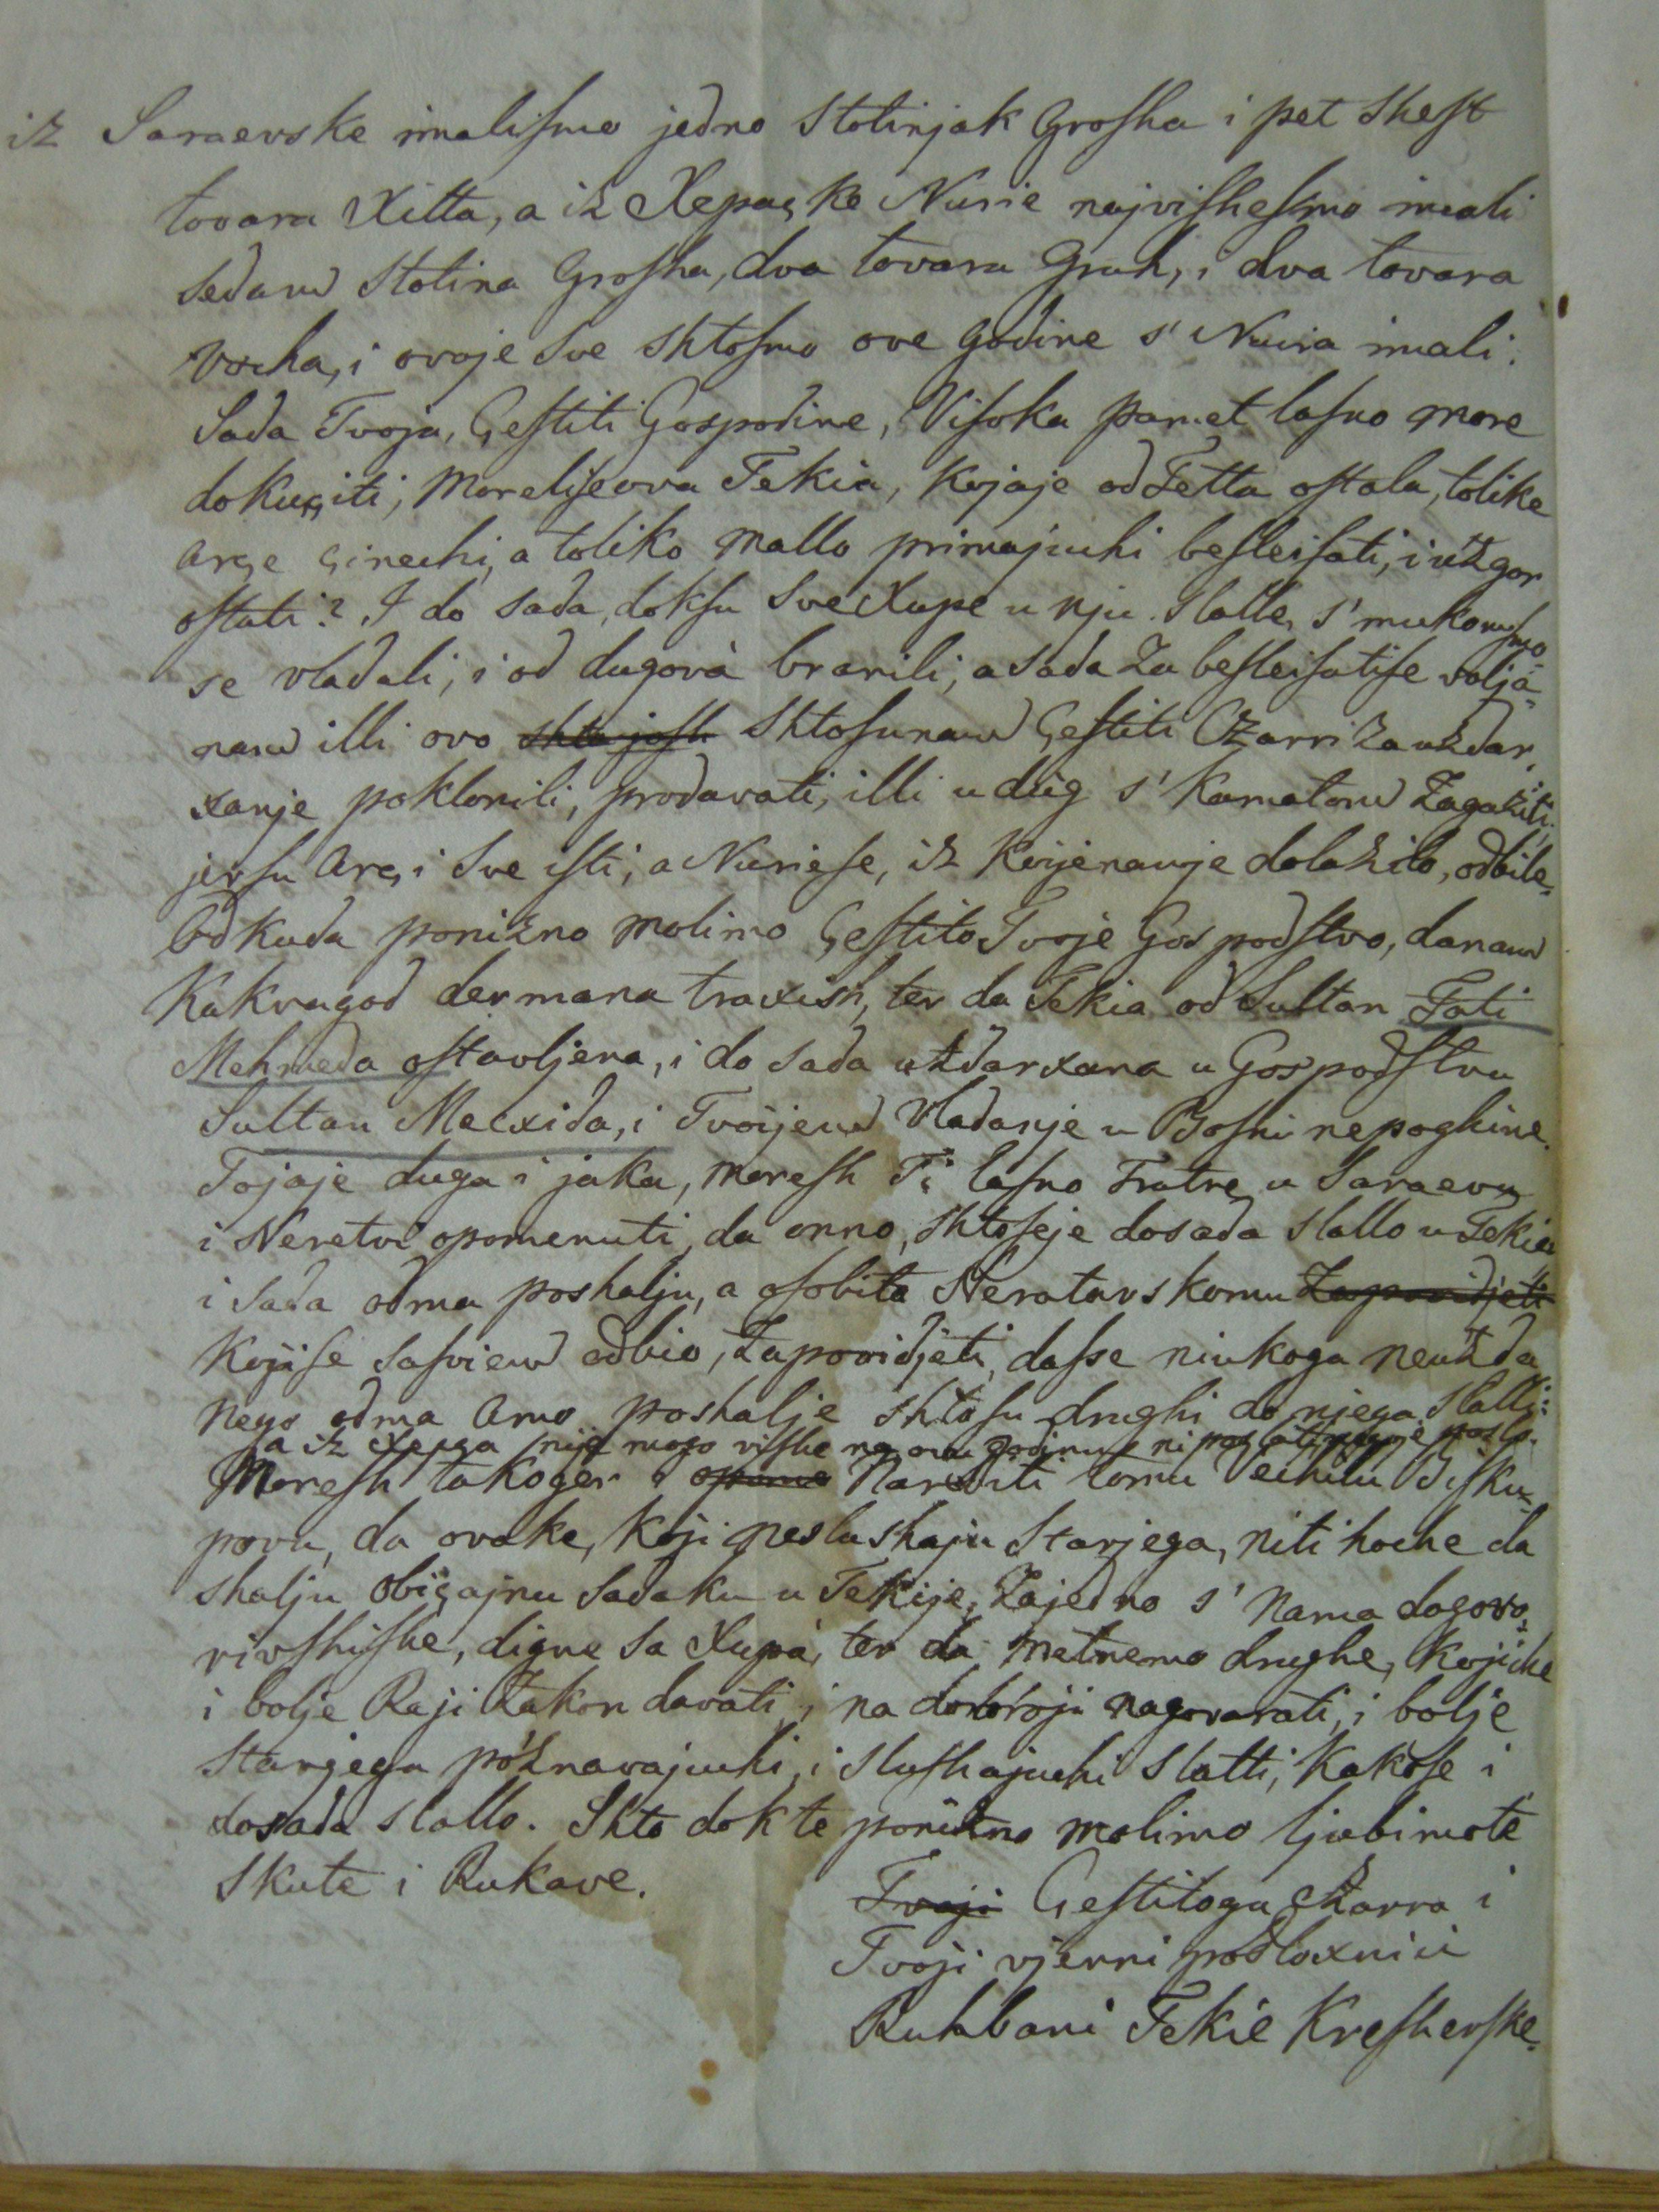 iz Saraevske imaliſmo jedno Stotinjak Groſha i pet Sheſt
tovara Xitta, a iz Xepaçke Nurie najviſheſmo imali
Sedam Stotina Groſha, dva tovara Grah, i dva tovara
Vocha, i ovoje Sve Shtoſmo ove godine s' Nuria imali.
Sada Tvoja, Çeſtiti Gospodine, Viſoka pamet laſno more
dokuçiti, Moreliſeova Tekia, Kojaje od Fetta oſtala, tolike
Arçe çinechi, a toliko mallo primajuchi beſleiſati, i uzgor
oſtati? I do sada, dokſu Sve Xupe u nju Slatle, s' mukomſmo
se vladali, i od dugovà branili; a sada za beſleiſatiſe valjà-
nam illi ovo shto joſh Shtoſunam Çeſtiti Czarri za uzdar-
xanje poklonili, prodavati, illi u dug s' Kamatom Zagaziti.
jerſu Arçi Sve iſti, a Nurieſe, iz Kojienamje dolazilo, odbile.
Odkuda ponizno molimo Çeſtito Tvoje Gospodſtvo, danam
Kakvagod dermana traxish, ter da Tekia od Sultan Fati
Mehmeda oſtavljena, i do sada uzdarxana u Gospodſtvu
Sultan Mecxida, i Tvojem Vladanje u Boſni nepoghine.
Tojaje duga i jaka, moreſh Ti laſno Fratre u Saraevu
i Neretvi opomenuti, da onno, Shtoſeje dosada slallo u Tekiu
i Sada odma poshalju, a oſobito Neretavskomu Zapovidjeti
Kojiſe Saſviem odbio, Zapovidjeti, daſse niukoga neuzda
nego odma Amo poshalje shtoſu drughi do njega Slatli:
a iz Xepça nije mogo viſhe na ovu godinu ni poſlati nego je poslo.
Moreſh takoger i opome Narediti tomu Vechilu Biſku-
povu, da ovake, Koji neslushaju Starjega, niti hoche da
shalju obiçajnu Sadaku u Tekije, Zajedno s' Nama dogovo-
rivſhiſhe, digne sa Xupà, ter da metnemo drughe, Kojiche
i bolje Raji Zakon davati, i na dobroju nagovarati, i bolje
Starjega poznavajuchi, i Sluſhajuchi Slatti, Kakoſe i
dosada slallo. Shto dok te ponizno molimo ljubimote
Skute i Rukave.
Tvoji Çeſtitoga Czarra i
Tvoji vjerni podloxnici
Ruhbani Tekie Kreſhevſke.